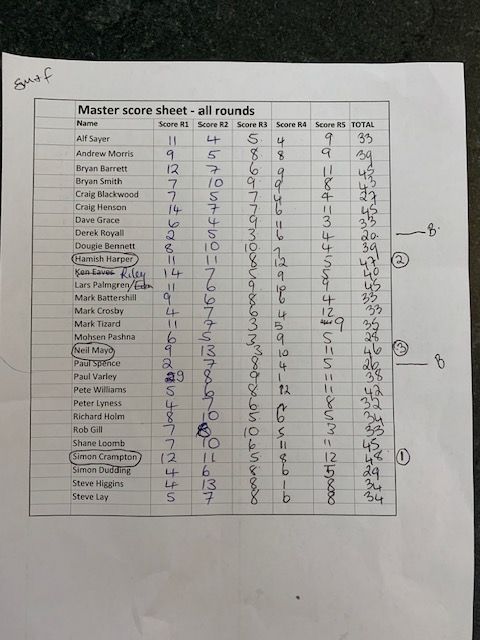 Master score sheet - all rounds
Name Score R1 Score R2 Score R3 Score R4 Score R5 TOTAL
Alf Sayer 11 4 5 4 9 33
Andrew Morris 9 5 8 8 9 39
Bryan Barrett 12 7 6 9 11 45
Bryan Smith 7 10 9 9 8 43
Craig Blackwood 7 5 7 4 4 27
Craig Henson 14 7 7 6 11 45
Dave Grace 6 4 9 11 3 33
Derek Royall 2 5 3 6 4 20 B
Dougie Bennett 8 10 10 7 4 39
Hamish Harper 11 11 8 12 5 47 2
Ken Eaves Riley 14 7 5 9 5 40
Lars Palmgren 11 6 9 10 9 45
Mark Battershill 9 6 8 6 4 33
Mark Crosby 4 7 6 4 12 33
Mark Tizard 11 7 3 5 9 35
Mohsen Pashna 6 5 3 9 5 28
Neil Mayo 9 13 3 10 11 46 3
Paul Spence 2 7 8 4 5 26 B
Paul Varley 9 8 9 1 11 38
Pete Williams 5 6 8 12 11 42
Peter Lyness 4 7 6 7 8 32
Richard Holm 8 10 5 6 5 34
Rob Gill 7 8 10 5 3 33
Shane Loomb 7 10 6 11 11 45
Simon Crampton 12 11 5 8 12 48 1
Simon Dudding 4 6 8 6 5 29
Steve Higgins 4 13 8 1 8 34
Steve Lay 5 7 8 6 8 34